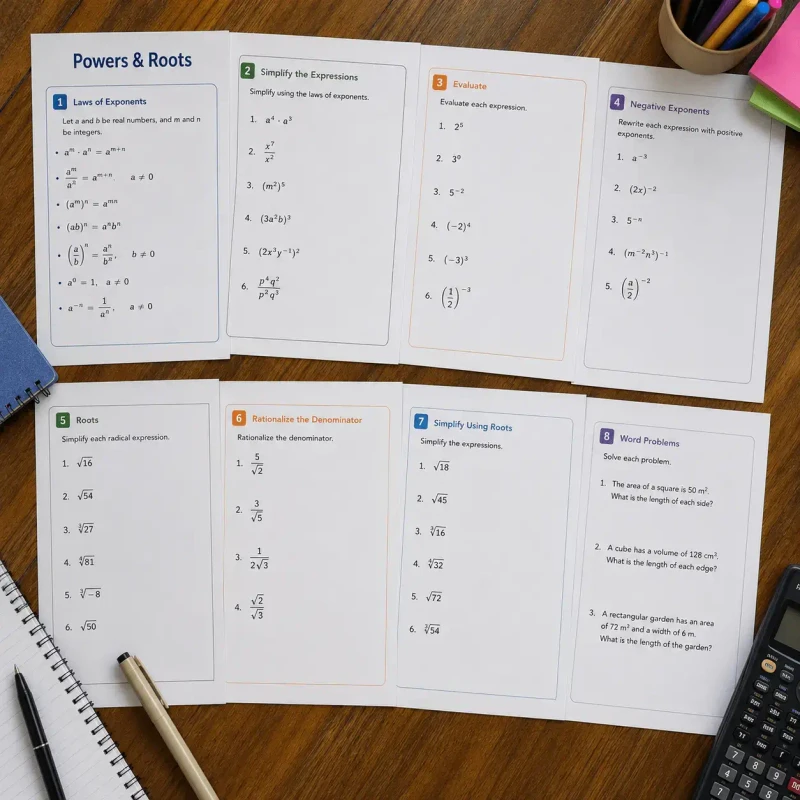 Powers & Roots
1 Laws of Exponents
Let a and b be real numbers, and m and n
be integers.
• aᵐ · aⁿ = aᵐ⁺ⁿ
• aᵐ/aⁿ = aᵐ⁺ⁿ. a ≠ 0
• (aᵐ)ⁿ = aᵐⁿ
• (ab)ⁿ = aⁿbⁿ
• (a/b)ⁿ = aⁿ/bⁿ, b ≠ 0
• a⁰ = 1, a ≠ 0
• a⁻ⁿ = 1/aⁿ, a ≠ 0
2 Simplify the Expressions
Simplify using the laws of exponents.
1. a⁴ · a³
2. x⁷/x²
3. (m²)⁵
4. (3a²b)³
5. (2x³y⁻¹)²
6. p⁴q²/p²q³
3 Evaluate
Evaluate each expression.
1. 2⁵
2. 3⁰
3. 5⁻²
4. (−2)⁴
5. (−3)³
6. (1/2)⁻³
4 Negative Exponents
Rewrite each expression with positive
exponents.
1. a⁻³
2. (2x)⁻²
3. 5⁻ⁿ
4. (m⁻²n³)⁻¹
5. (a/2)⁻²
5 Roots
Simplify each radical expression.
1. √16
2. √54
3. ∛27
4. ∜81
5. ∛−8
6. √50
6 Rationalize the Denominator
Rationalize the denominator.
1. 5/√2
2. 3/√5
3. 1/2√3
4. √2/√3
7 Simplify Using Roots
Simplify the expressions.
1. √18
2. √45
3. ∛16
4. ∜32
5. √72
6. ∛54
8 Word Problems
Solve each problem.
1. The area of a square is 50 m².
What is the length of each side?
2. A cube has a volume of 128 cm³.
What is the length of each edge?
3. A rectangular garden has an area
of 72 m² and a width of 6 m.
What is the length of the garden?